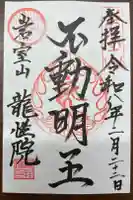 奉拝 令和八年一月二十二日
不動明王
岩室山 龍泉院